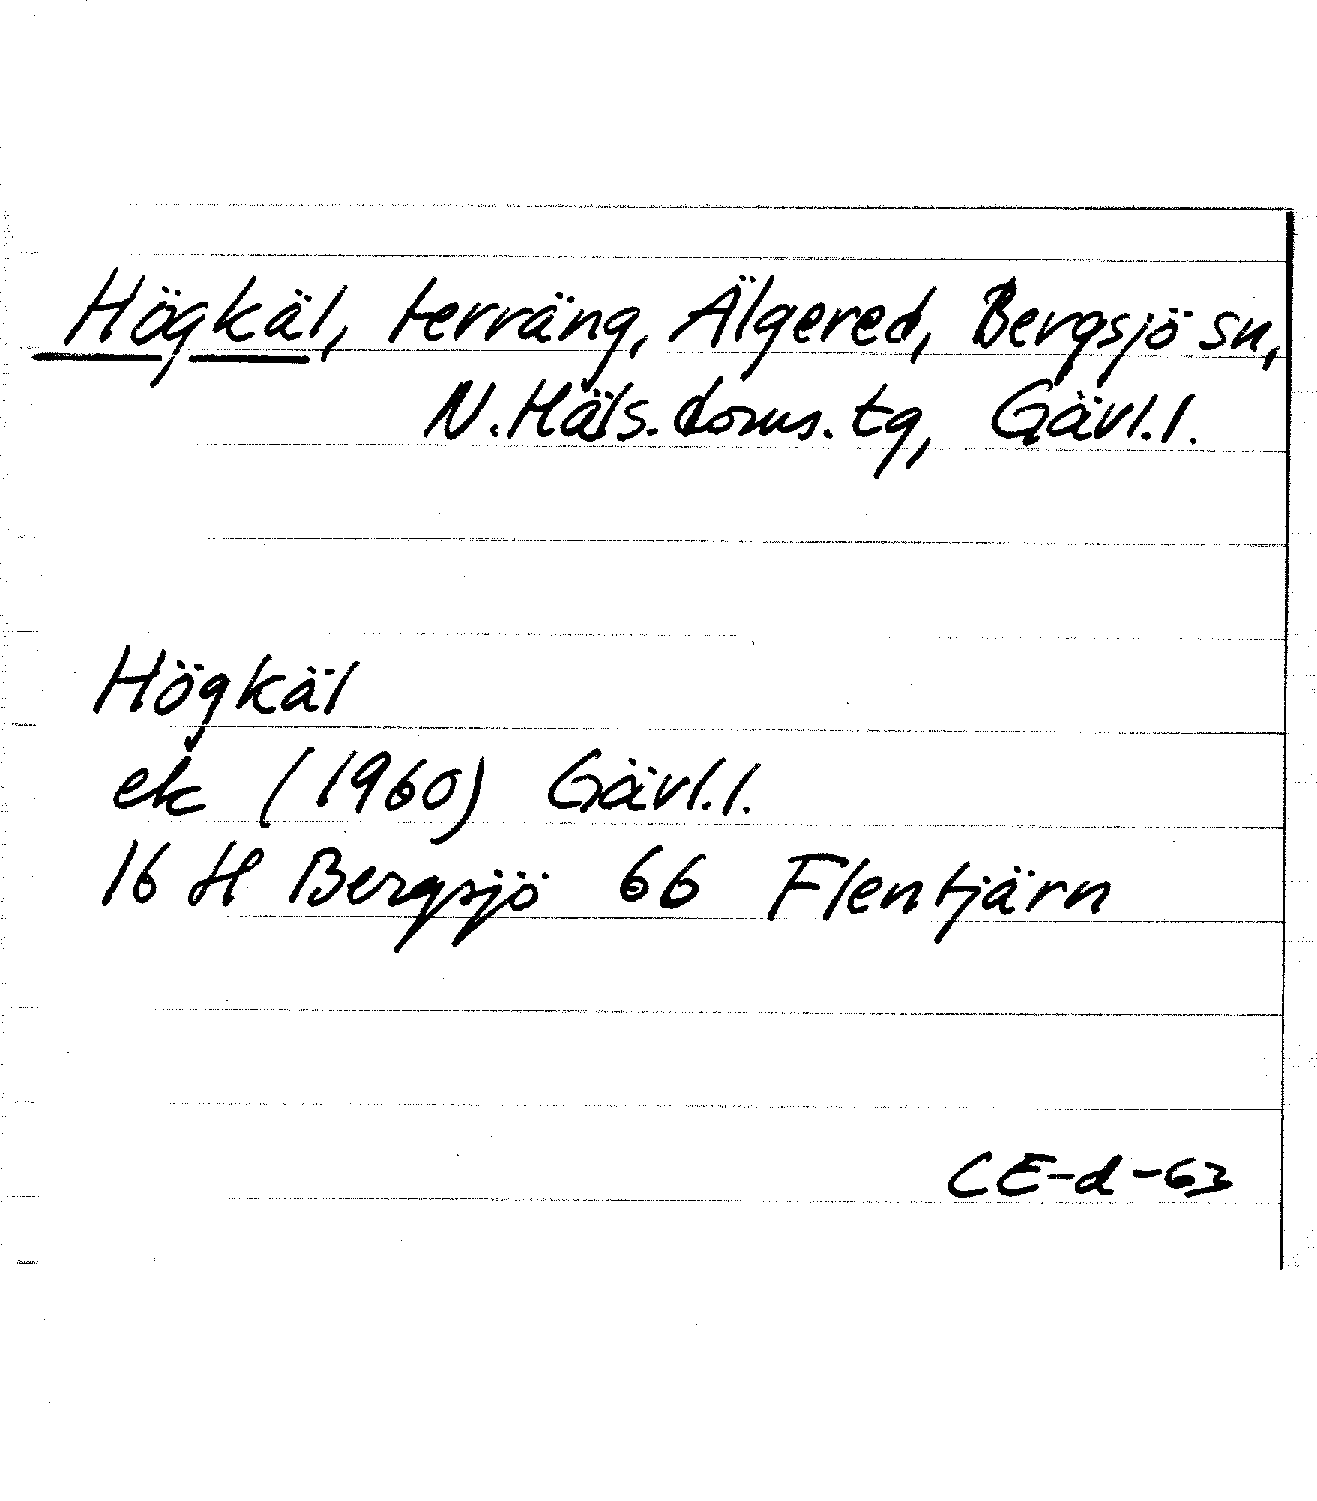 Högkäl, terräng, Älgered, Bergsjö sn,
N.Häls.doms.tg, Gävl.l.
Högkäl
ek (1960) Gävl.l.
16 H Bergsjö 66 Flentjärn
CE-d-63